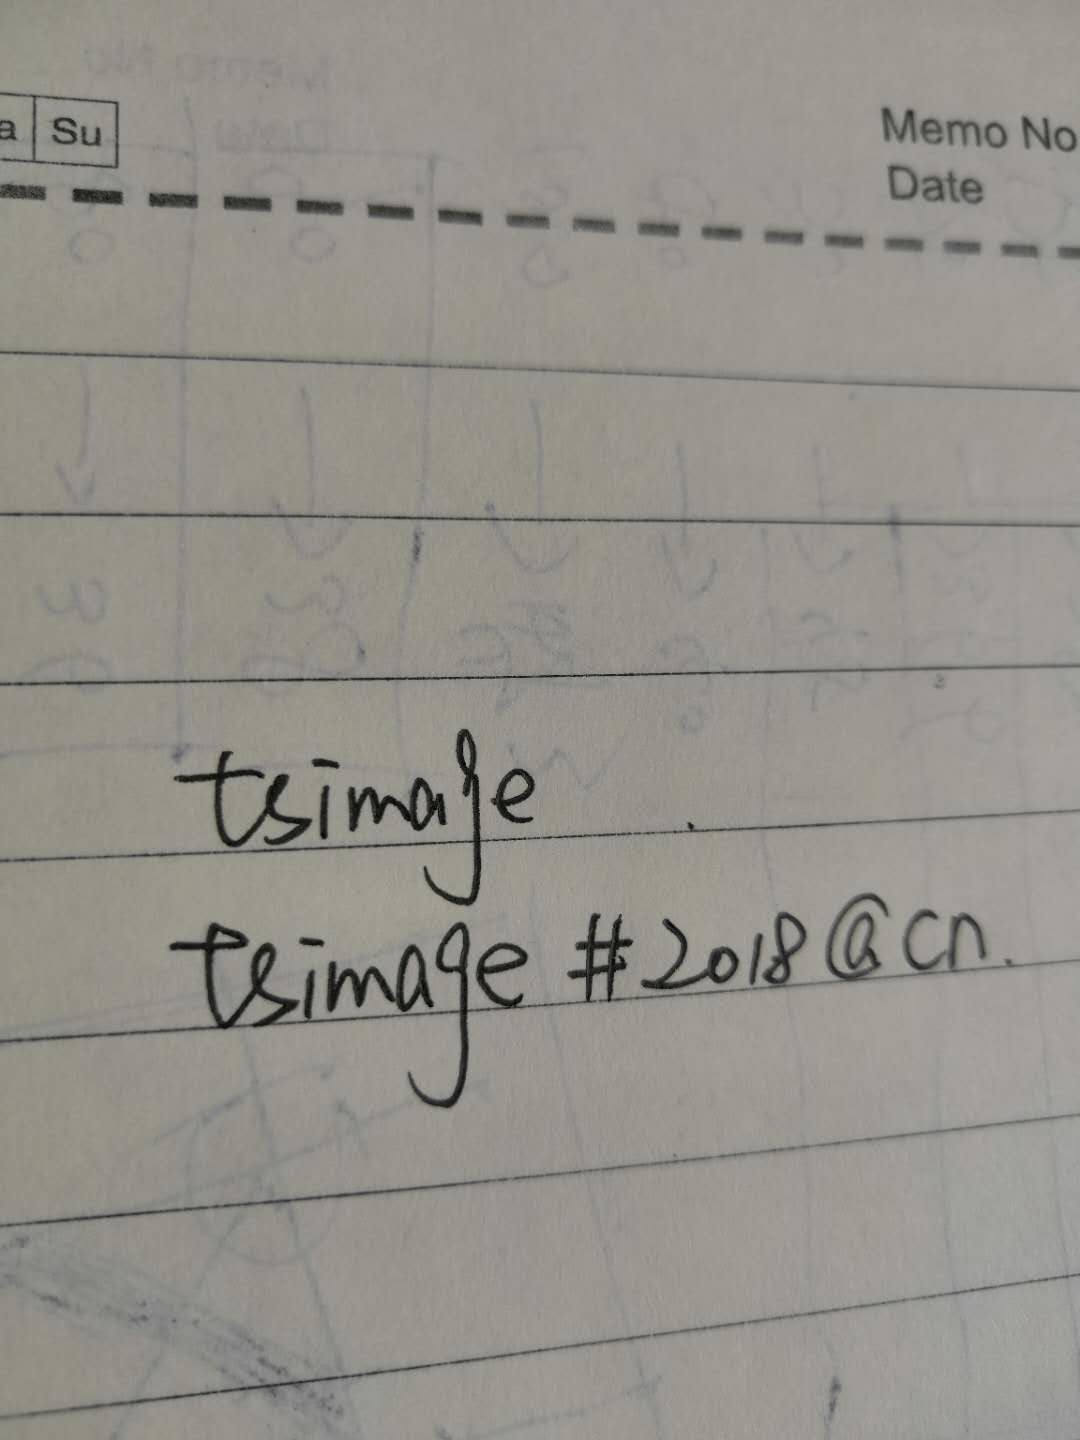 a Su
Memo No
Date
tsimage
tsimage #2018@cn.